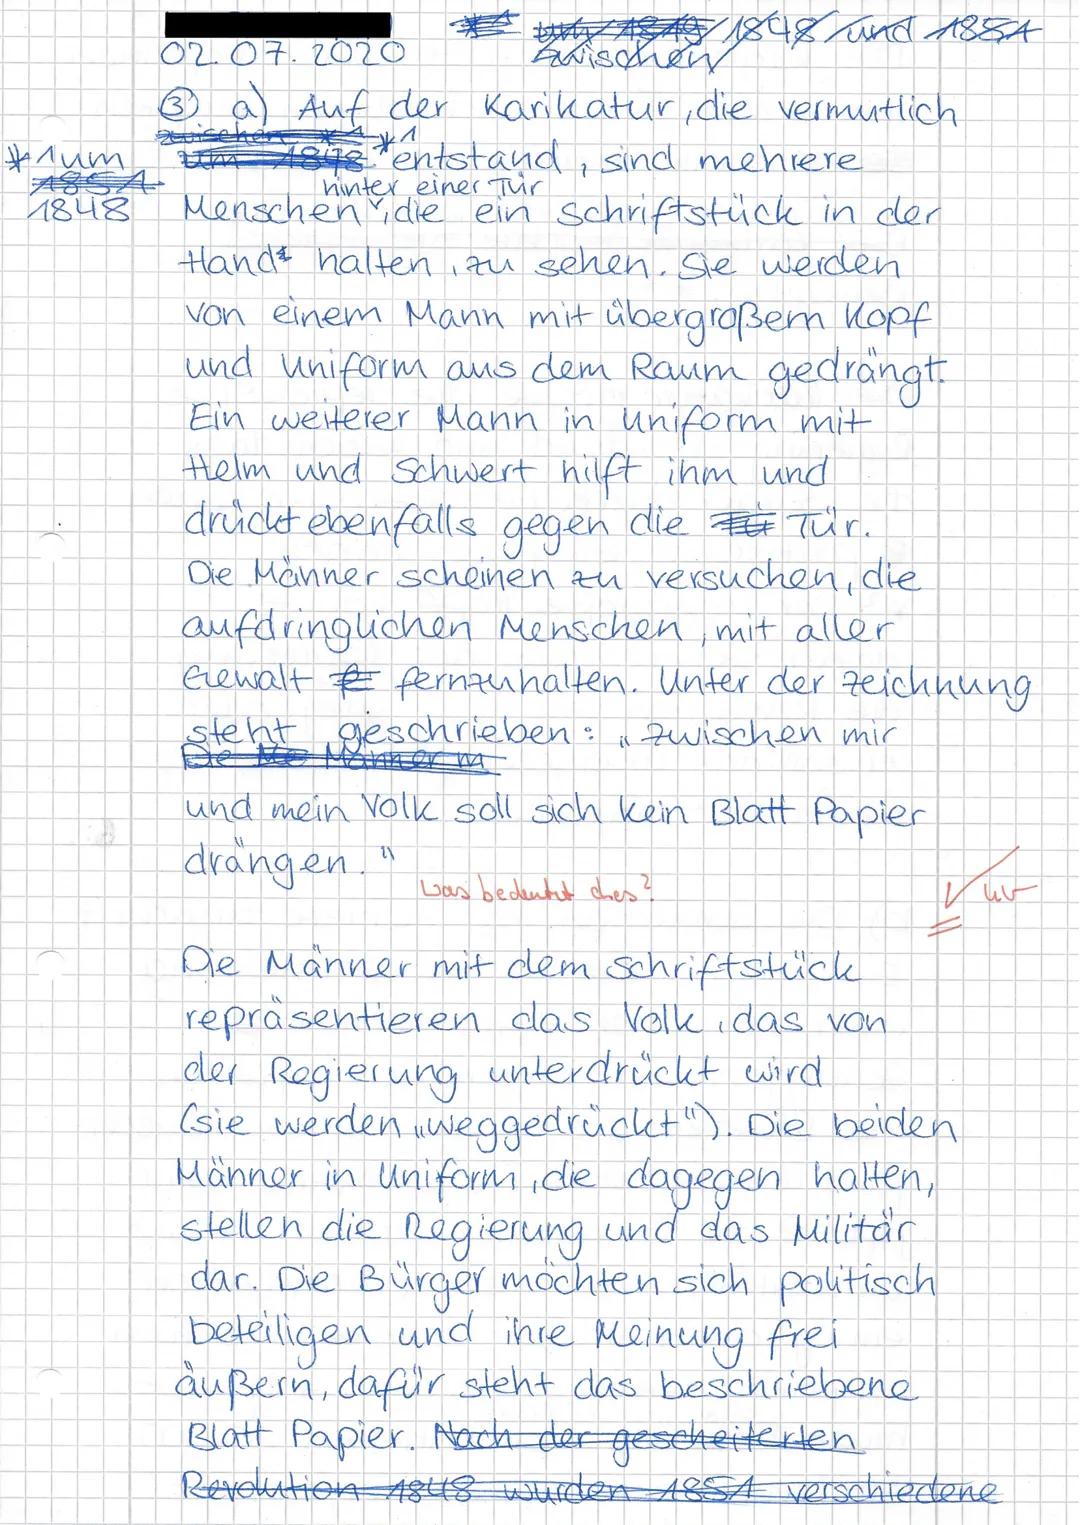 02.07.2020
um 1849/1848 und 1851
zwischen
③ a) Auf der Karikatur, die vermutlich
zwischen *1
um 1848 *1 entstand, sind mehrere
*1 um
1851
1848
hinter einer Tür
Menschen, die ein Schriftstück in der
Hand halten, zu sehen. Sie werden
von einem Mann mit übergroßem Kopf
und Uniform aus dem Raum gedrängt.
Ein weiterer Mann in Uniform mit
Helm und Schwert hilft ihm und
drückt ebenfalls gegen die Tür.
Die Männer scheinen zu versuchen, die
aufdringlichen Menschen, mit aller
Gewalt fernzuhalten. Unter der Zeichnung
steht geschrieben: „Zwischen mir
Männer
und mein Volk soll sich kein Blatt Papier
drängen."
Was bedeutet dies?
Die Männer mit dem Schriftstück
repräsentieren das Volk, das von
der Regierung unterdrückt wird
(sie werden „weggedrückt"). Die beiden
Männer in Uniform, die dagegen halten,
stellen die Regierung und das Militär
dar. Die Bürger möchten sich politisch
beteiligen und ihre Meinung frei
äußern, dafür steht das beschriebene
Blatt Papier. Nach der gescheiterten
Revolution 1848 wurden 1851 verschiedene